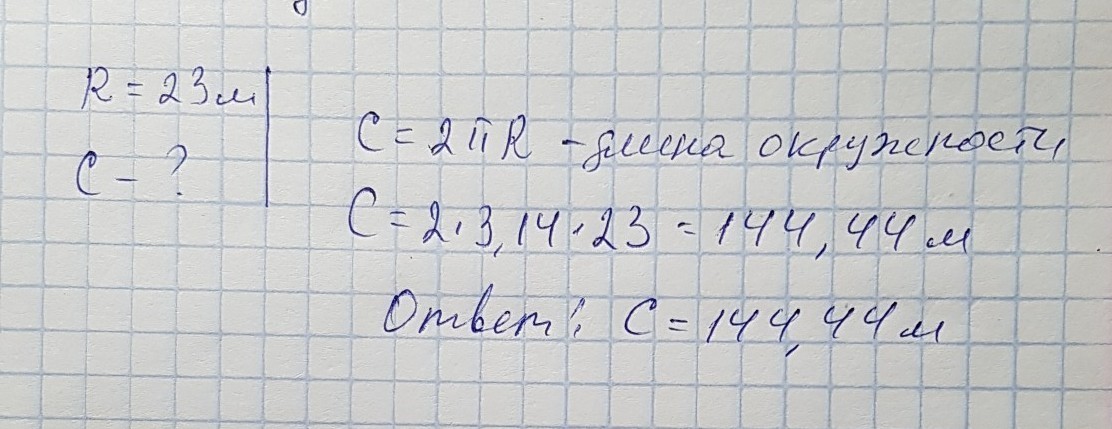 R = 23м
C - ?
C = 2πR - длина окружности
C = 2·3,14·23 = 144,44 м
Ответ: C = 144,44 м